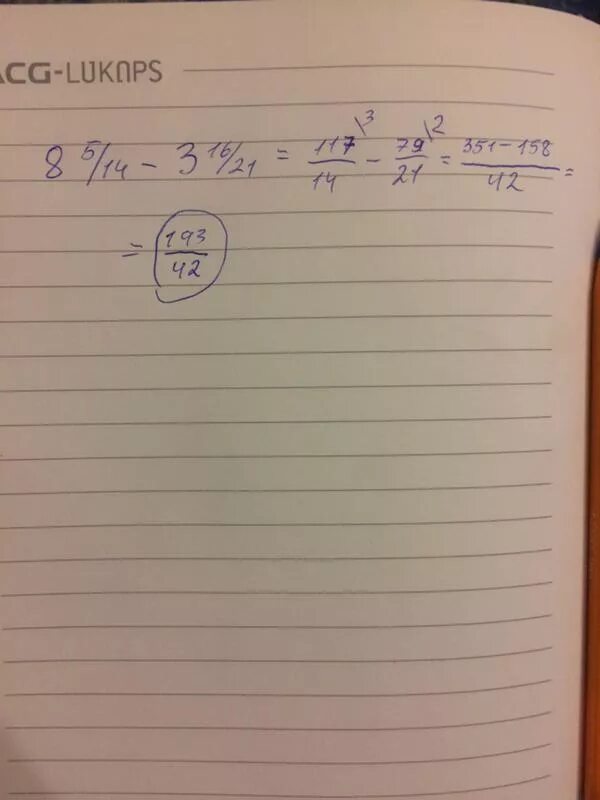 ACG-LUKAPS
8 5/14 - 3 16/21 = 117\3/14 - 79\2/21 = 351-158/42 =
= 193/42